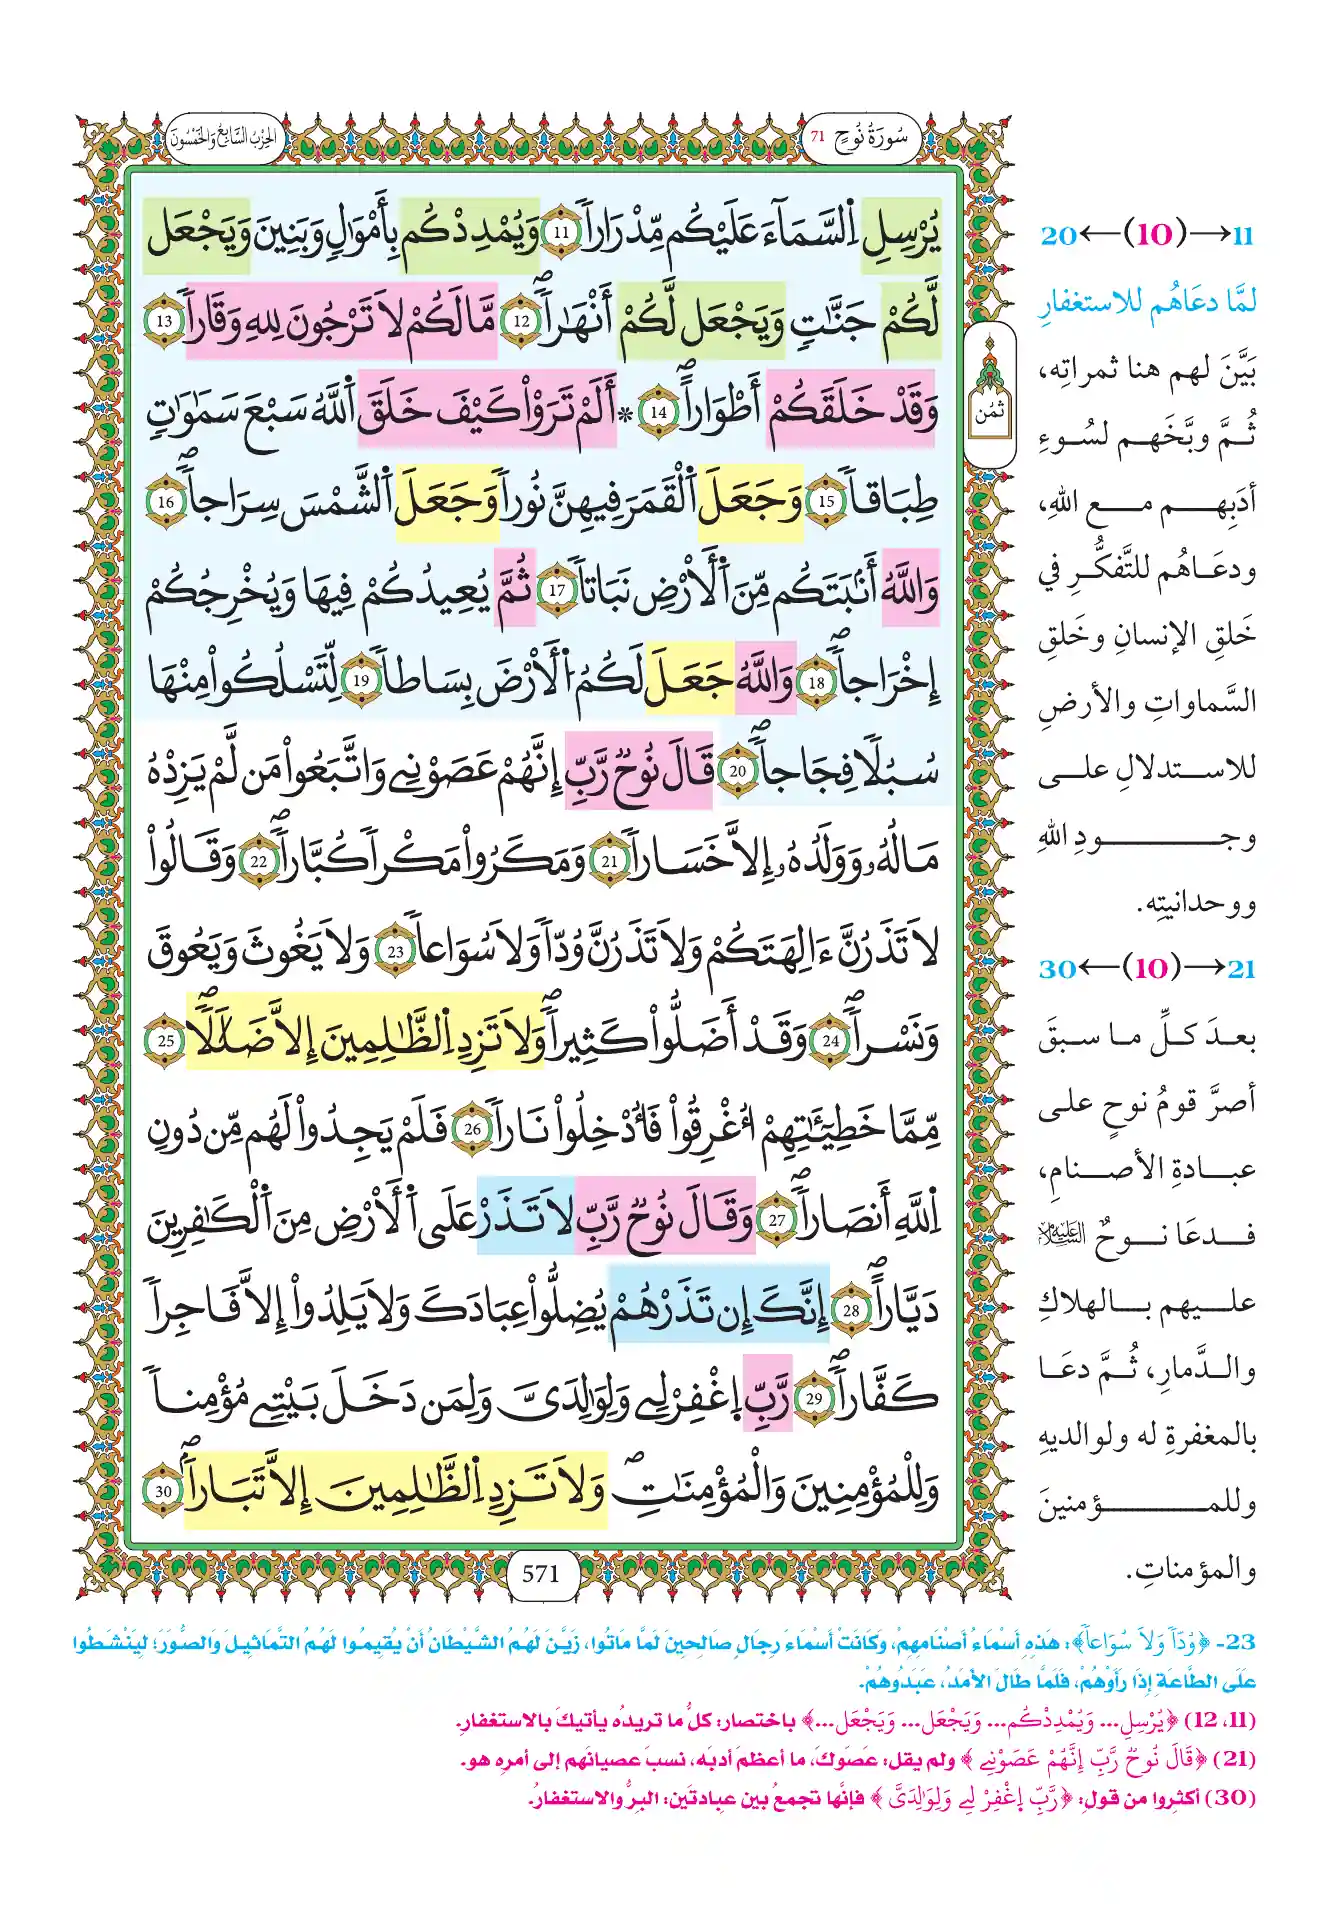 سُورَةُ نُوحٍ 71
الحِزْبُ السَّابِعُ وَالخَمْسُونَ
يُرْسِلِ اِ۬لسَّمَآءَ عَلَيْكُم مِّدْرَاراٗ 11 وَيُمْدِدْكُم بِأَمْوَٰلٖ وَبَنِينَ وَيَجْعَل
لَّكُمْ جَنَّٰتٖ وَيَجْعَل لَّكُمْ أَنْهَٰراٗۖ 12 مَّا لَكُمْ لَا تَرْجُونَ لِلهِ وَقَاراٗ 13
وَقَدْ خَلَقَكُمْ أَطْوَاراًۖ 14 * أَلَمْ تَرَوْاْ كَيْفَ خَلَقَ اَ۬للَّهُ سَبْعَ سَمَٰوَٰتٖ
طِبَاقاٗ 15 وَجَعَلَ اَ۬لْقَمَرَ فِيهِنَّ نُوراٗ وَجَعَلَ اَ۬لشَّمْسَ سِرَاجاٗۖ 16
وَاللَّهُ أَنۢبَتَكُم مِّنَ اَ۬لْأَرْضِ نَبَاتاٗ 17 ثُمَّ يُعِيدُكُمْ فِيهَا وَيُخْرِجُكُمْ
إِخْرَاجاٗۖ 18 وَاللَّهُ جَعَلَ لَكُمُ اُ۬لْأَرْضَ بِسَاطاٗ 19 لِّتَسْلُكُواْ مِنْهَا
سُبُلاٗ فِجَاجاٗۖ 20 قَالَ نُوحٞ رَّبِّ إِنَّهُمْ عَصَوْنِے وَاتَّبَعُواْ مَن لَّمْ يَزِدْهُ
مَالُهُۥ وَوَلَدُهُۥٓ إِلَّا خَسَاراٗ 21 وَمَكَرُواْ مَكْراٗ كُبَّاراٗۖ 22 وَقَالُواْ
لَا تَذَرُنَّ ءَالِهَتَكُمْ وَلَا تَذَرُنَّ وُدّاٗ وَلَا سُوَاعاٗ 23 وَلَا يَغُوثَ وَيَعُوقَ
وَنَسْراٗۖ 24 وَقَدْ أَضَلُّواْ كَثِيراٗۖ وَلَا تَزِدِ اِ۬لظَّٰلِمِينَ إِلَّا ضَلَٰلاٗۖ 25
مِّمَّا خَطِيٓـَٰٔتِهِمُۥٓ أُغْرِقُواْ فَأُدْخِلُواْ نَاراٗ 26 فَلَمْ يَجِدُواْ لَهُم مِّن دُونِ
اِ۬للَّهِ أَنصَاراٗۖ 27 وَقَالَ نُوحٞ رَّبِّ لَا تَذَرْ عَلَى اَ۬لْأَرْضِ مِنَ اَ۬لْكَٰفِرِينَ
دَيَّاراًۖ 28 إِنَّكَ إِن تَذَرْهُمْ يُضِلُّواْ عِبَادَكَ وَلَا يَلِدُوٓاْ إِلَّا فَاجِراٗ
كَفَّاراٗۖ 29 رَّبِّ اِ۪غْفِرْ لِے وَلِوَٰلِدَيَّ وَلِمَن دَخَلَ بَيْتِے مُؤْمِناٗ
وَلِلْمُؤْمِنِينَ وَالْمُؤْمِنَٰتِۖ وَلَا تَزِدِ اِ۬لظَّٰلِمِينَ إِلَّا تَبَاراَۢۖ 30
ثمُن
571
11→(10)←20
لمَّا دعَاهُم للاستغفارِ
بَيَّنَ لهم هنا ثمراتِه،
ثُمَّ وبَّخَهم لسُوءِ
أدَبِهم مع اللهِ،
ودعَاهُم للتَّفكُّرِ في
خَلقِ الإنسانِ وخَلقِ
السَّماواتِ والأرضِ
للاستدلالِ على
وجودِ اللهِ
ووحدانيتِه.
21→(10)←30
بعدَ كلِّ ما سبقَ
أصرَّ قومُ نوحٍ على
عبادةِ الأصنامِ،
فدعَا نوحٌ عليه السلام
عليهم بالهلاكِ
والدَّمارِ، ثُمَّ دعَا
بالمغفرةِ له ولوالديهِ
وللمؤمنينَ
والمؤمناتِ.
23- ﴿وُدّاٗ وَلَا سُوَاعاٗ﴾: هَذِهِ أَسْمَاءُ أَصْنَامِهِمْ، وَكَانَتْ أَسْمَاءَ رِجَالٍ صَالِحِينَ لَمَّا مَاتُوا، زَيَّنَ لَهُمُ الشَّيْطَانُ أَنْ يُقِيمُوا لَهُمُ التَّمَاثِيلَ وَالصُّوَرَ؛ لِيَنْشَطُوا
عَلَى الطَّاعَةِ إِذَا رَأَوْهُمْ، فَلَمَّا طَالَ الأَمَدُ، عَبَدُوهُمْ.
(11، 12) ﴿يُرْسِلِ... وَيُمْدِدْكُم... وَيَجْعَل... وَيَجْعَل...﴾ باختصار: كلُّ ما تريدُه يأتيكَ بالاستغفارِ.
(21) ﴿قَالَ نُوحٞ رَّبِّ إِنَّهُمْ عَصَوْنِے﴾ ولم يقل: عصَوكَ، ما أعظمَ أدبَه، نسبَ عصيانَهم إلى أمرِه هو.
(30) أكثِروا من قولِ: ﴿رَّبِّ اِ۪غْفِرْ لِے وَلِوَٰلِدَيَّ﴾ فإنَّها تجمعُ بين عبادتَين: البرُّ والاستغفارُ.